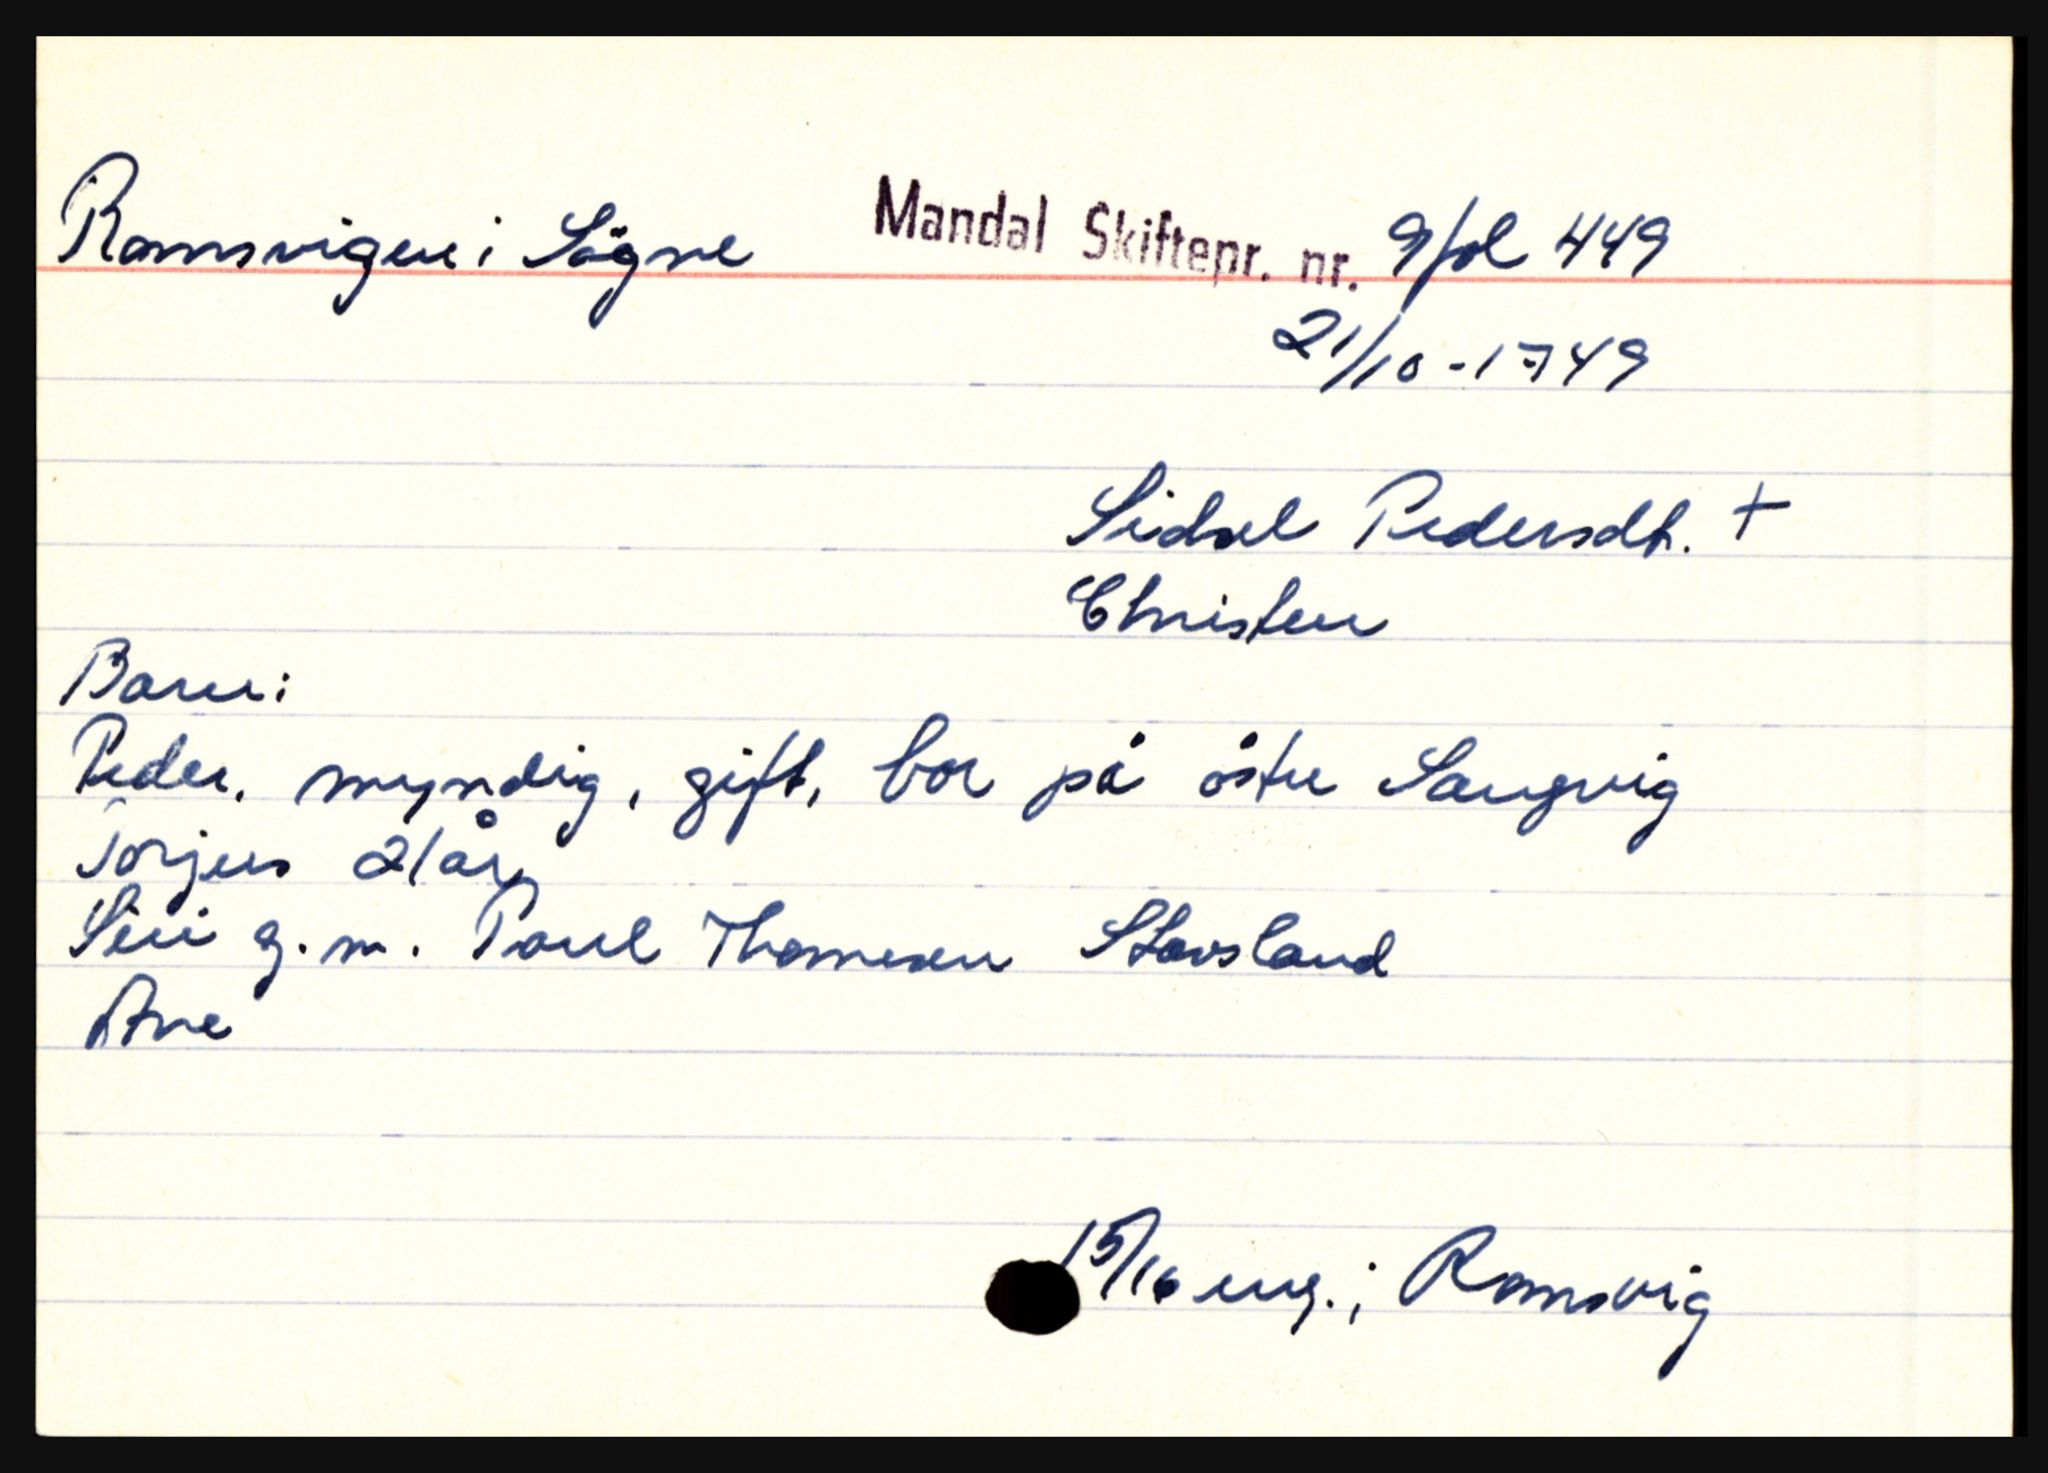 Romsvigen i Søgne Mandal Skiftepr. nr. 9/fol 449
21/10-1749
Sidsel Pedersdt. +
Christen
Barn:
Peder, myndig, gift, bor på östre Sangvig
Torjus 21 år,
Siri g.m. Poul Thomesen Stavsland
Ane
15/16 eng. i Romsvig